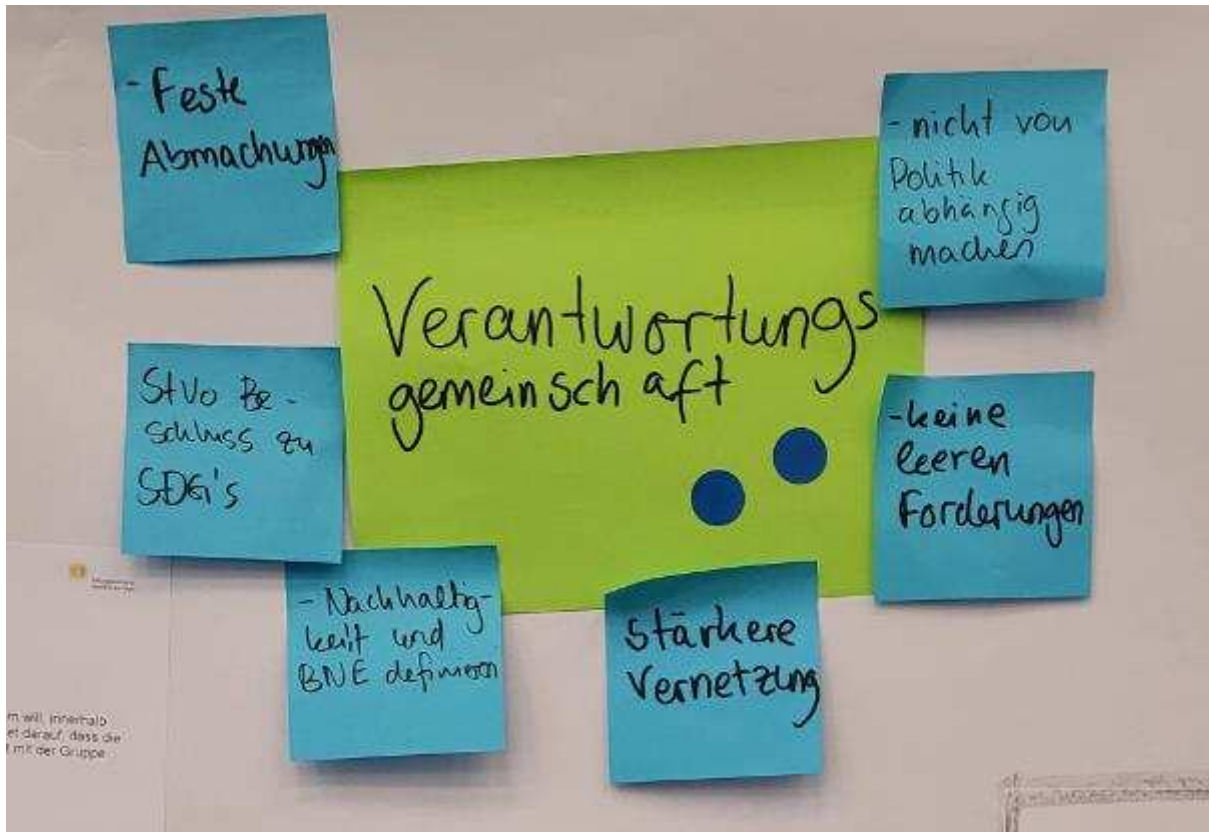 - Feste
Abmachungen
- nicht von
Politik
abhängig
machen
Verantwortungs
gemeinschaft
StVo Be-
schluss zu
SDG's
- keine
leeren
Forderungen
- Nachhaltig-
keit und
BNE definieren
stärkere
Vernetzung
m will, innerhalb
et darauf, dass die
mit der Gruppe